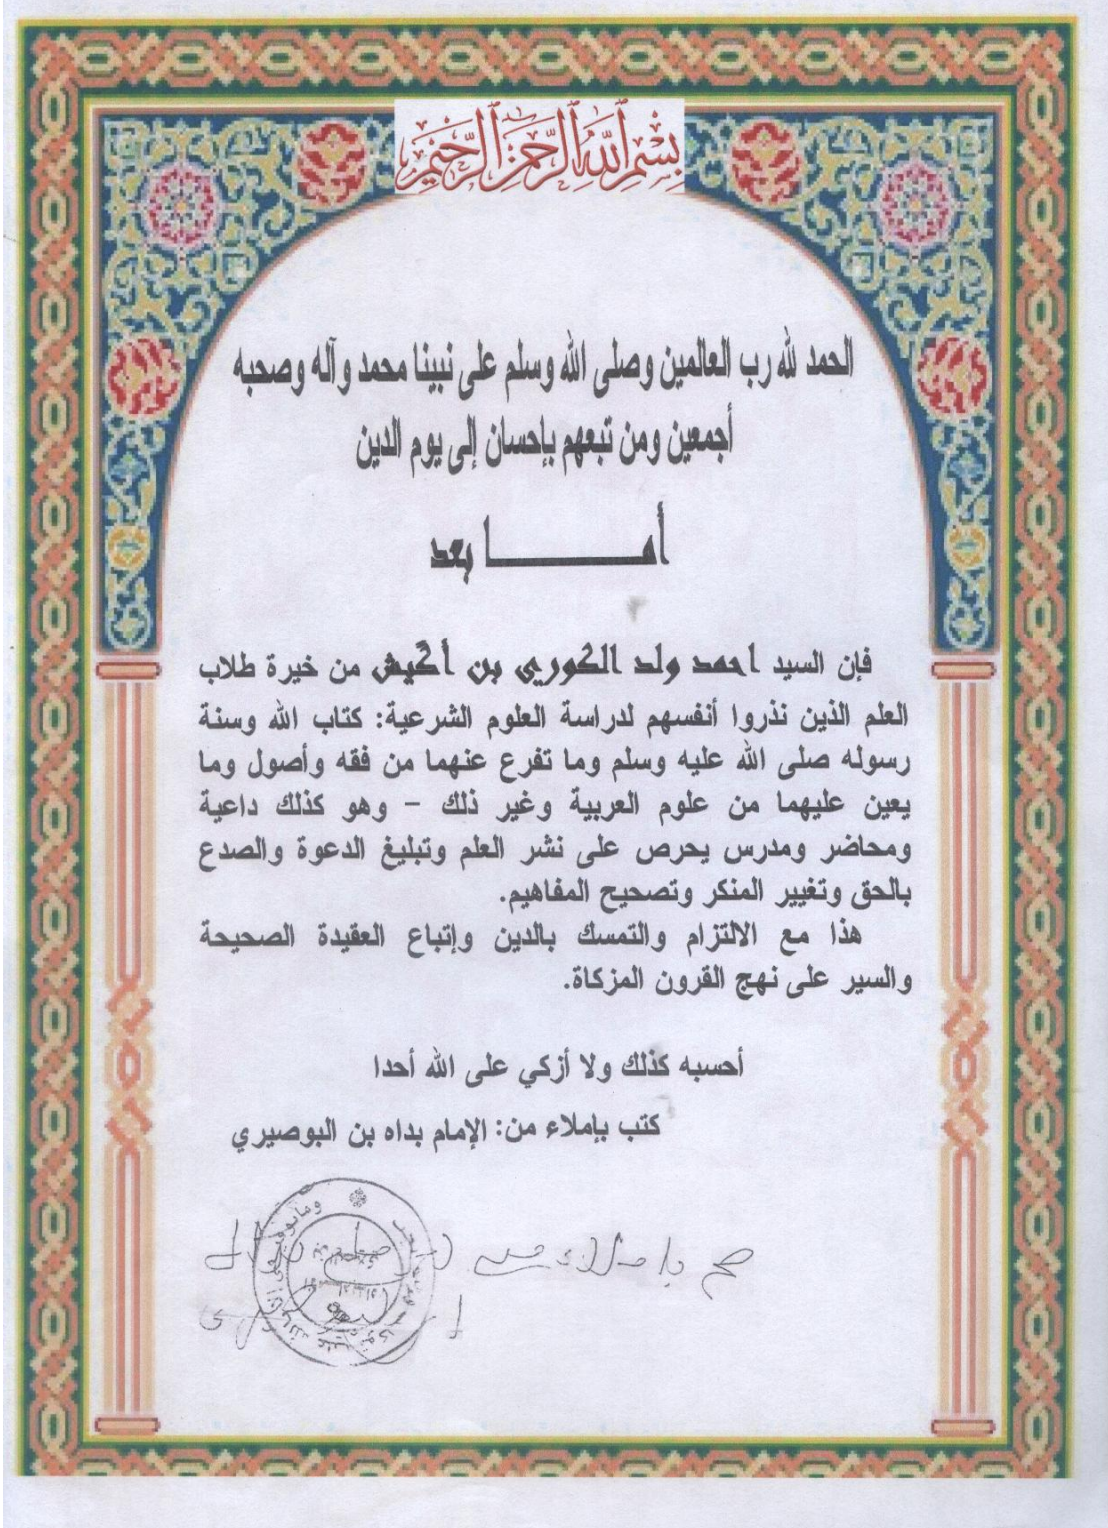 بسم الله الرحمن الرحيم
الحمد لله رب العالمين وصلى الله وسلم على نبينا محمد وآله وصحبه
أجمعين ومن تبعهم بإحسان إلى يوم الدين
أمـــــــا بعد
فإن السيد احمد ولد الكوري بن أگيش من خيرة طلاب
العلم الذين نذروا أنفسهم لدراسة العلوم الشرعية: كتاب الله وسنة
رسوله صلى الله عليه وسلم وما تفرع عنهما من فقه وأصول وما
يعين عليهما من علوم العربية وغير ذلك – وهو كذلك داعية
ومحاضر ومدرس يحرص على نشر العلم وتبليغ الدعوة والصدع
بالحق وتغيير المنكر وتصحيح المفاهيم.
هذا مع الالتزام والتمسك بالدين وإتباع العقيدة الصحيحة
والسير على نهج القرون المزكاة.
أحسبه كذلك ولا أزكي على الله أحدا
كتب بإملاء من: الإمام بداه بن البوصيري
صح بإملاء من